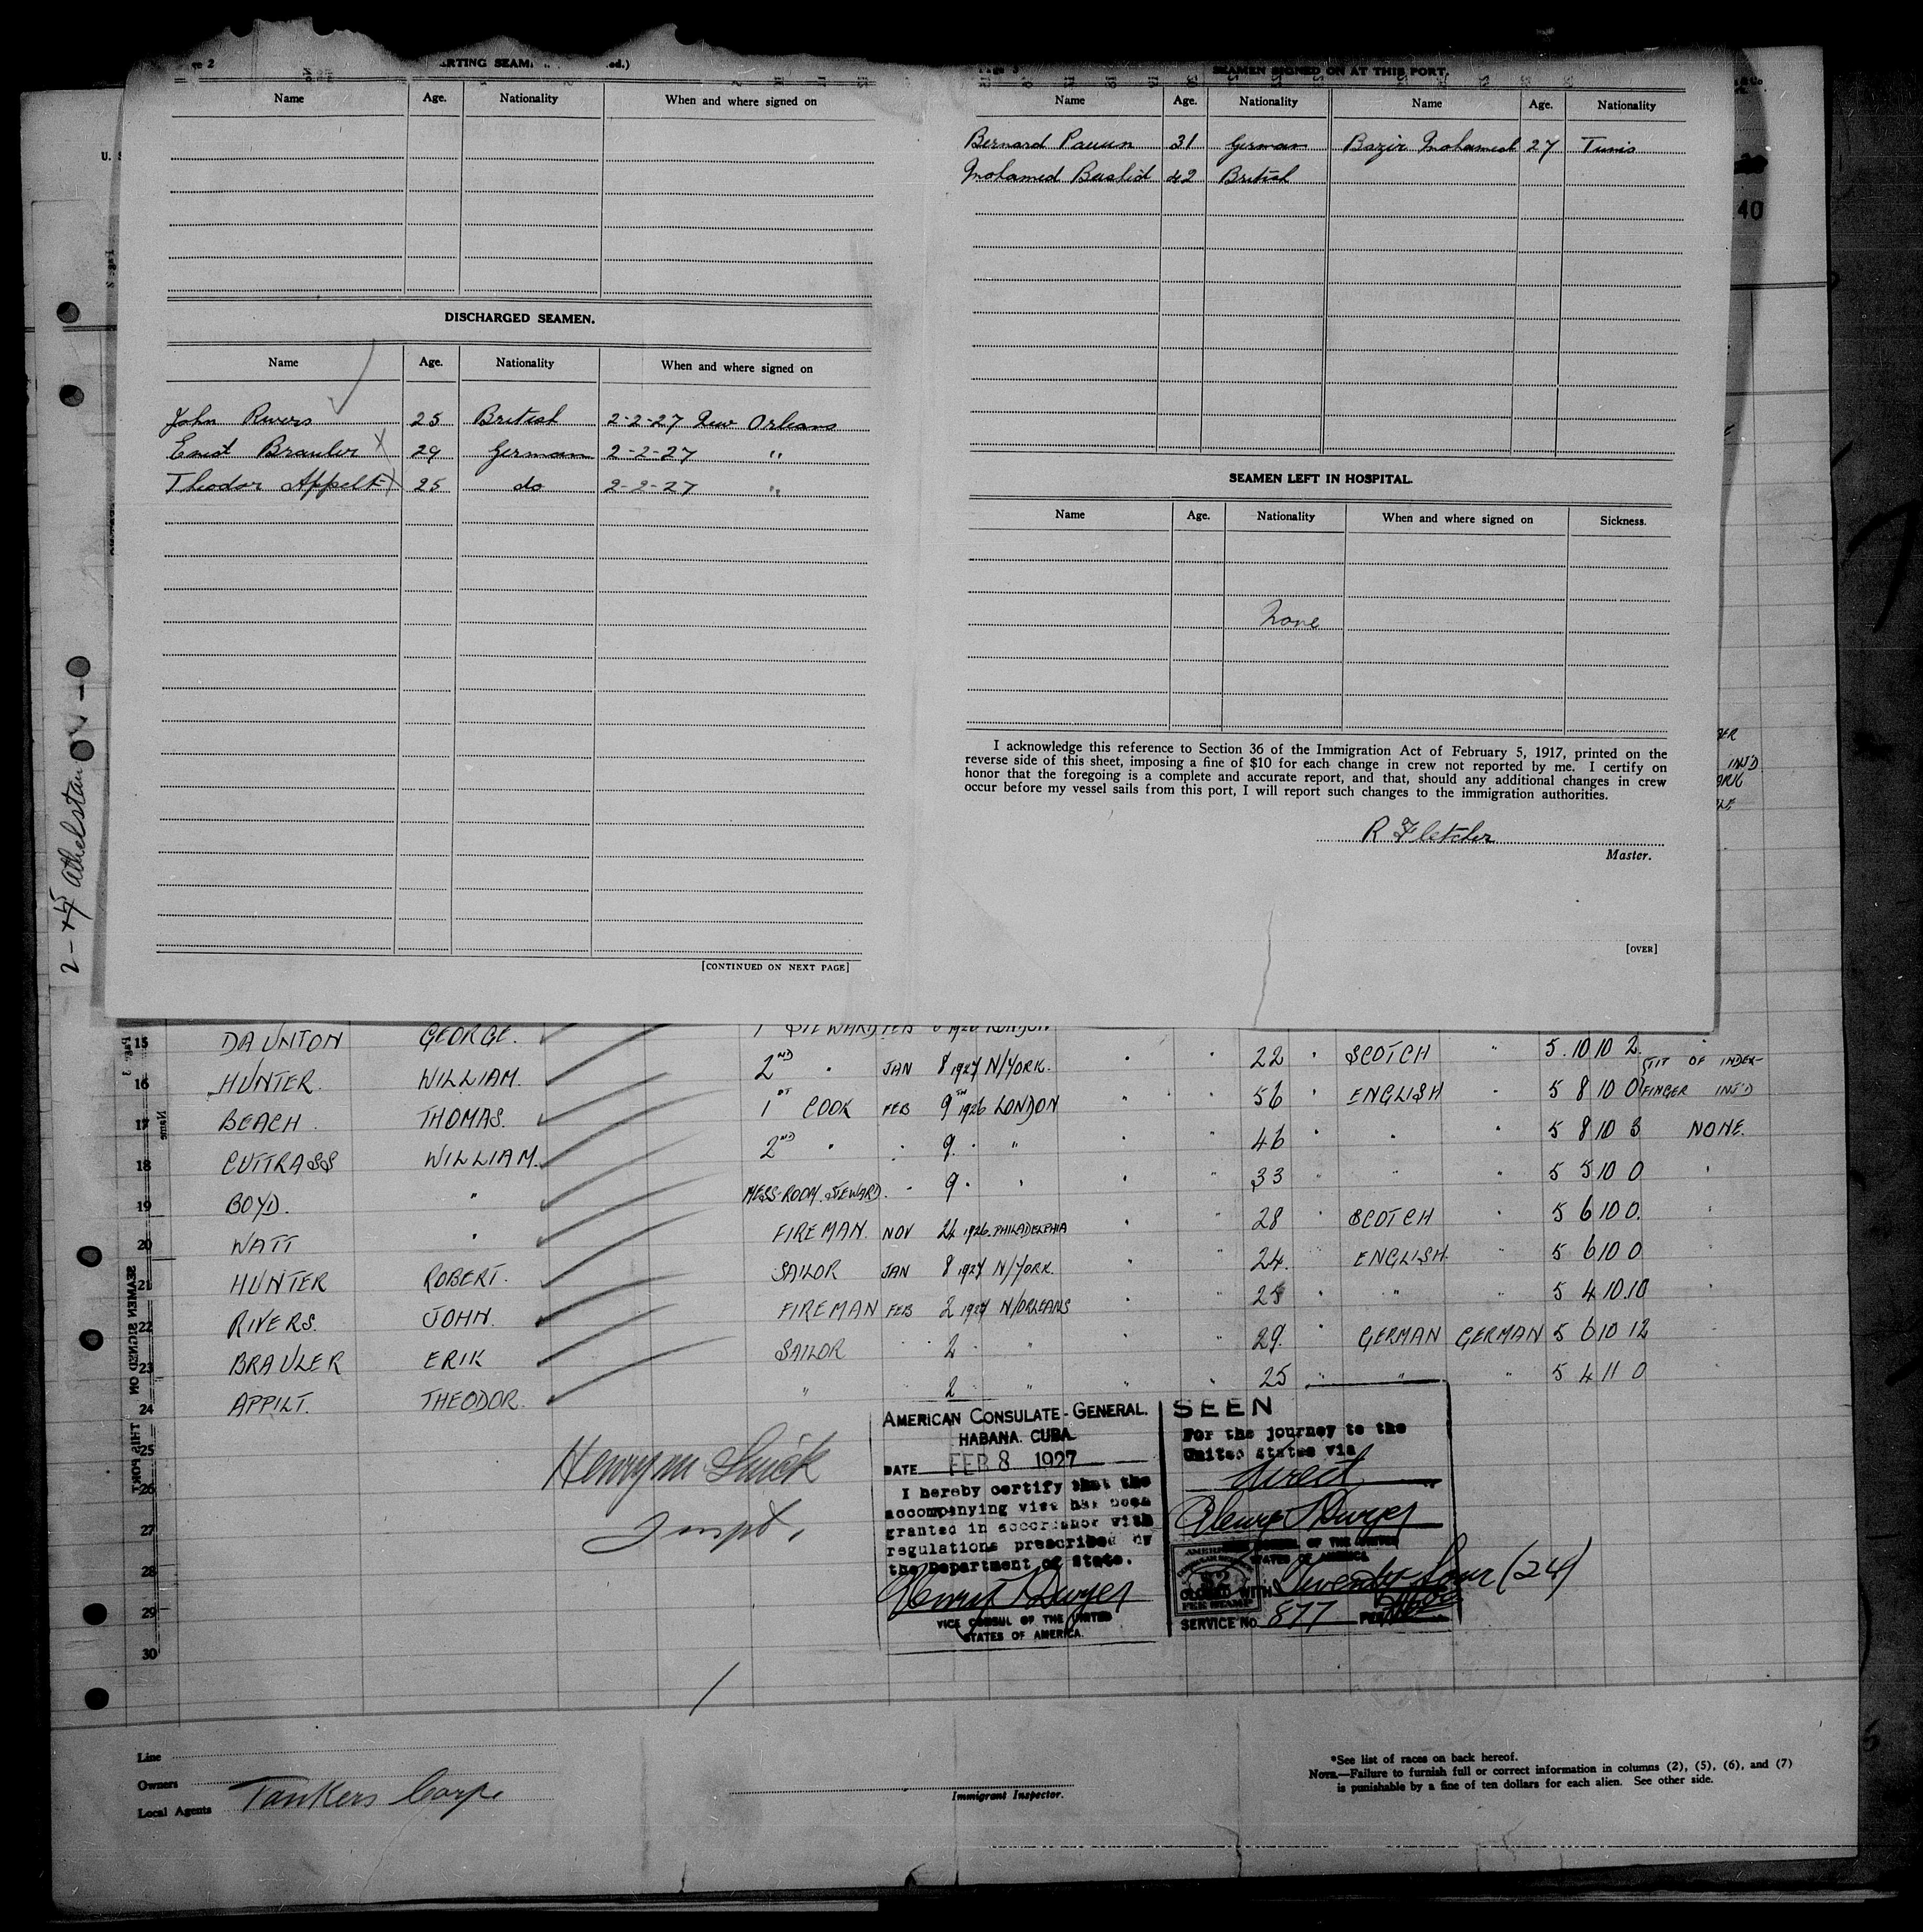 SEAMEN SIGNED ON AT THIS PORT.
Name Age. Nationality When and where signed on
DISCHARGED SEAMEN.
Name Age. Nationality When and where signed on
John Rivers 25 British 2-2-27 New Orleans
Ernst Brauler 29 German 2-2-27 "
Theodor Appelt 25 do 2-2-27 "
[CONTINUED ON NEXT PAGE]
Name Age. Nationality Name Age. Nationality
Bernard 31 German Bazir Mohamed 27 Tunis
Mohamed 42 British
SEAMEN LEFT IN HOSPITAL.
Name Age. Nationality When and where signed on Sickness.
None
I acknowledge this reference to Section 36 of the Immigration Act of February 5, 1917, printed on the
reverse side of this sheet, imposing a fine of $10 for each change in crew not reported by me. I certify on
honor that the foregoing is a complete and accurate report, and that, should any additional changes in crew
occur before my vessel sails from this port, I will report such changes to the immigration authorities.
R Fletcher
Master.
[OVER]
40
Athelstan
15 DAUNTON GEORGE. 1 STEWARD FEB 1926 LONDON
16 HUNTER WILLIAM. 2ND " JAN 8 1927 N/YORK. " " 22 " SCOTCH " 5 10 10 2 "
17 BEACH THOMAS. 1ST COOK FEB 9TH 1926 LONDON " " 56 " ENGLISH " 5 8 10 0 TIT OF INDEX-FINGER INJ'D
18 CUTTRASS WILLIAM. 2ND " " 9 " " " " 46 " " " 5 8 10 3 NONE.
19 BOYD. " MESS-ROOM STEWARD. " 9 " " " " 33 " " " 5 5 10 0 "
20 WATT " FIREMAN NOV 24 1926 PHILADELPHIA " " 28 " SCOTCH " 5 6 10 0 "
21 HUNTER ROBERT. SAILOR JAN 8 1927 N/YORK. " " 24 " ENGLISH " 5 6 10 0 "
22 RIVERS. JOHN. FIREMAN FEB 2 1927 N/ORLEANS " " 25 " " " 5 4 10 10 "
23 BRAULER ERIK SAILOR " 2 " " " " 29. " GERMAN GERMAN 5 6 10 12 "
24 APPILT. THEODOR. " " 2 " " " " 25 " " " 5 4 11 0 "
25
26
27
28
29
30
SEAMEN SIGNED ON THIS PORT
Inspt.
AMERICAN CONSULATE-GENERAL.
HABANA. CUBA.
DATE FEB 8 1927
I hereby certify that the
accompanying visa has been
granted in accordance with
regulations prescribed by
the Department of State.
Henry T Dwyer
VICE CONSUL OF THE UNITED
STATES OF AMERICA.
SEEN
For the journey to the
United States via
direct
Henry T Dwyer
CONSUL OF THE UNITED
STATES OF AMERICA
CLOSED WITH Twenty four (24)
FEE STAMP
SERVICE NO. 877
Line
Owners
Local Agents Tankers Corp.
Immigrant Inspector.
*See list of races on back hereof.
NOTE.—Failure to furnish full or correct information in columns (2), (5), (6), and (7)
is punishable by a fine of ten dollars for each alien. See other side.